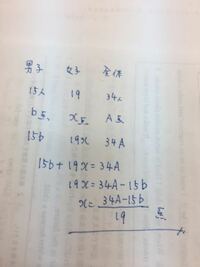 男子 女子 全体
15人 19 34人
b点 x点 A点
15b 19x 34A
15b + 19x = 34A
19x = 34A - 15b
x = \frac{34A - 15b}{19} 点